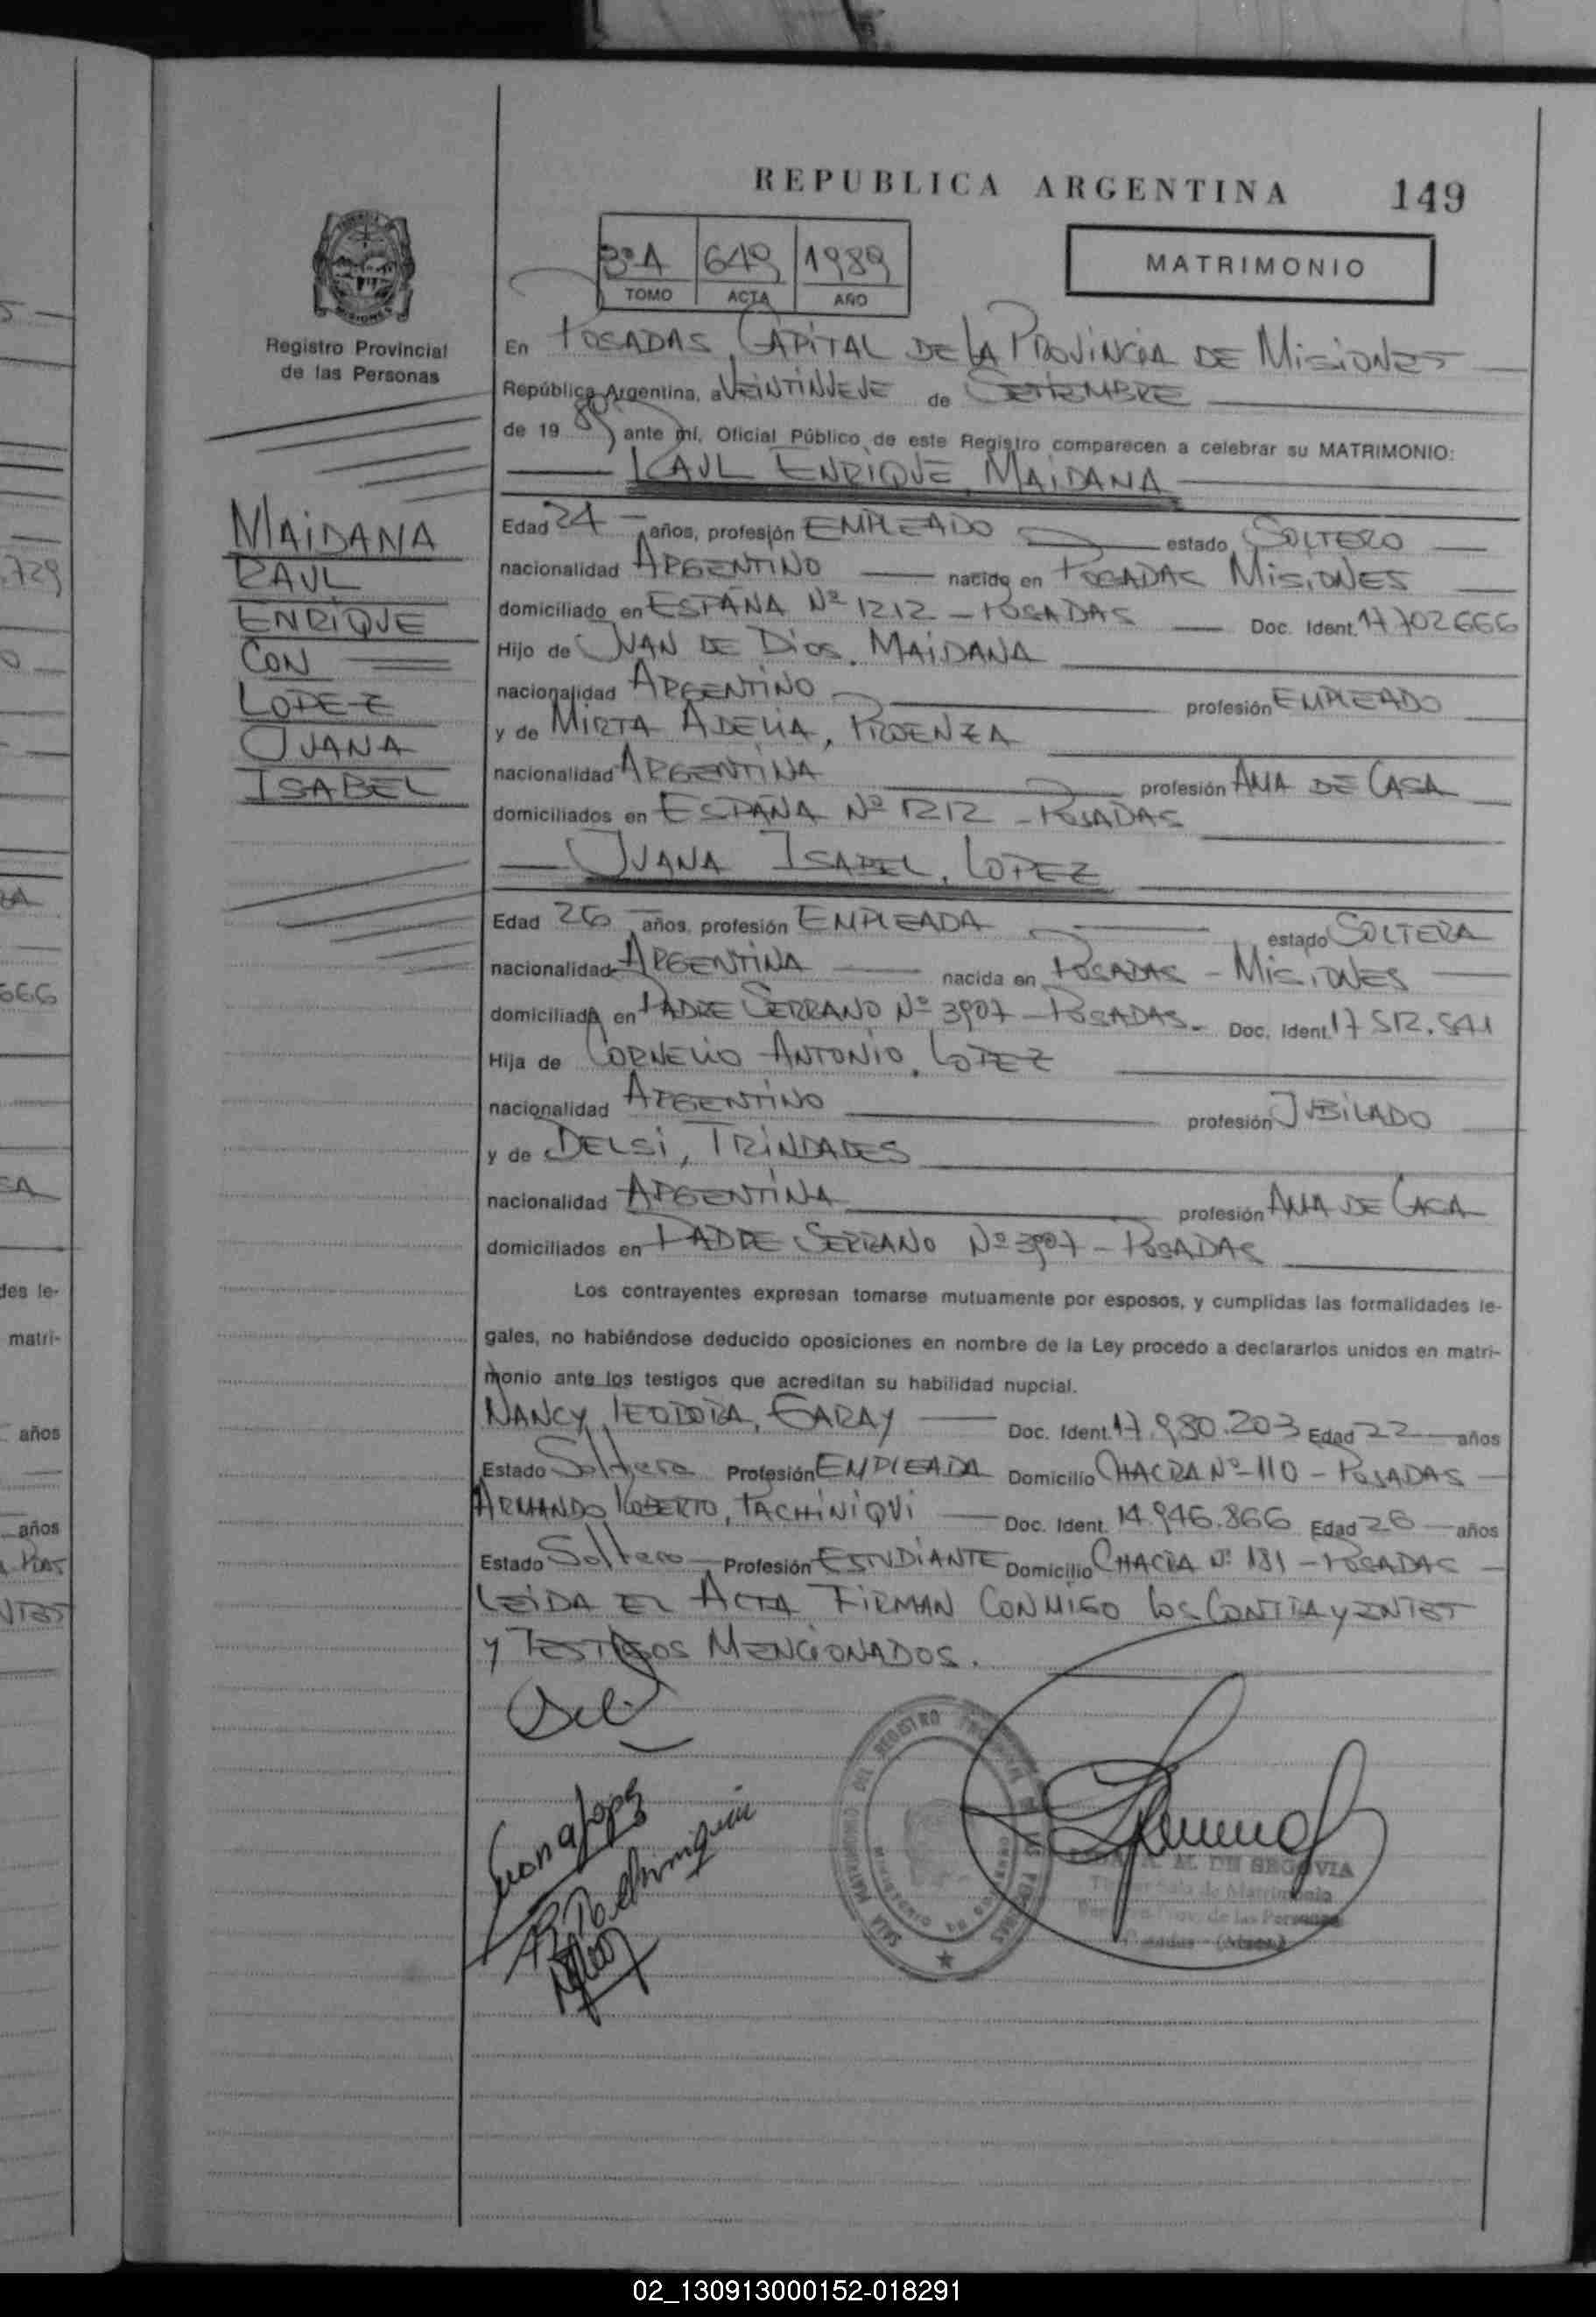 REPUBLICA ARGENTINA 149
3º A 649 1989
TOMO ACTA AÑO
MATRIMONIO
Registro Provincial
de las Personas
MAIDANA
RAUL
ENRIQUE
CON
LOPEZ
JUANA
ISABEL
En POSADAS, CAPITAL DE LA PROVINCIA DE MISIONES
República Argentina, a VEINTINUEVE de SETIEMBRE
de 1989 ante mí, Oficial Público de este Registro comparecen a celebrar su MATRIMONIO:
RAUL ENRIQUE, MAIDANA
Edad 24 años, profesión EMPLEADO estado SOLTERO
nacionalidad ARGENTINO nacido en POSADAS MISIONES
domiciliado en ESPAÑA Nº 1212 - POSADAS Doc. Ident. 17702666
Hijo de JUAN DE DIOS, MAIDANA
nacionalidad ARGENTINO profesión EMPLEADO
y de MIRTA ADELIA, PROENZA
nacionalidad ARGENTINA profesión AMA DE CASA
domiciliados en ESPAÑA Nº 1212 - POSADAS
JUANA ISABEL, LOPEZ
Edad 26 años, profesión EMPLEADA estado SOLTERA
nacionalidad ARGENTINA nacida en POSADAS - MISIONES
domiciliada en PADRE SERRANO Nº 3907 - POSADAS - Doc. Ident. 17 512.541
Hija de CORNELIO ANTONIO, LOPEZ
nacionalidad ARGENTINO profesión JUBILADO
y de DELSI, TRINDADES
nacionalidad ARGENTINA profesión AMA DE CASA
domiciliados en PADRE SERRANO Nº 3907 - POSADAS
Los contrayentes expresan tomarse mutuamente por esposos, y cumplidas las formalidades le-
gales, no habiéndose deducido oposiciones en nombre de la Ley procedo a declararlos unidos en matri-
monio ante los testigos que acreditan su habilidad nupcial.
NANCY TEODORA, GARAY Doc. Ident. 17.980.203 Edad 22 años
Estado Soltera Profesión EMPLEADA Domicilio CHACRA Nº 110 - POSADAS
ARMANDO ROBERTO, PACHINIQUI Doc. Ident. 14.946.866 Edad 26 años
Estado Soltero Profesión ESTUDIANTE Domicilio CHACRA Nº 181 - POSADAS
LEIDA EL ACTA FIRMAN CONMIGO LOS CONTRAYENTES
Y TESTIGOS MENCIONADOS.
M. DE SEGOVIA
Sala de Matrimonio
Prov. de las Personas
Posadas - (Mnes.)
02_130913000152-018291